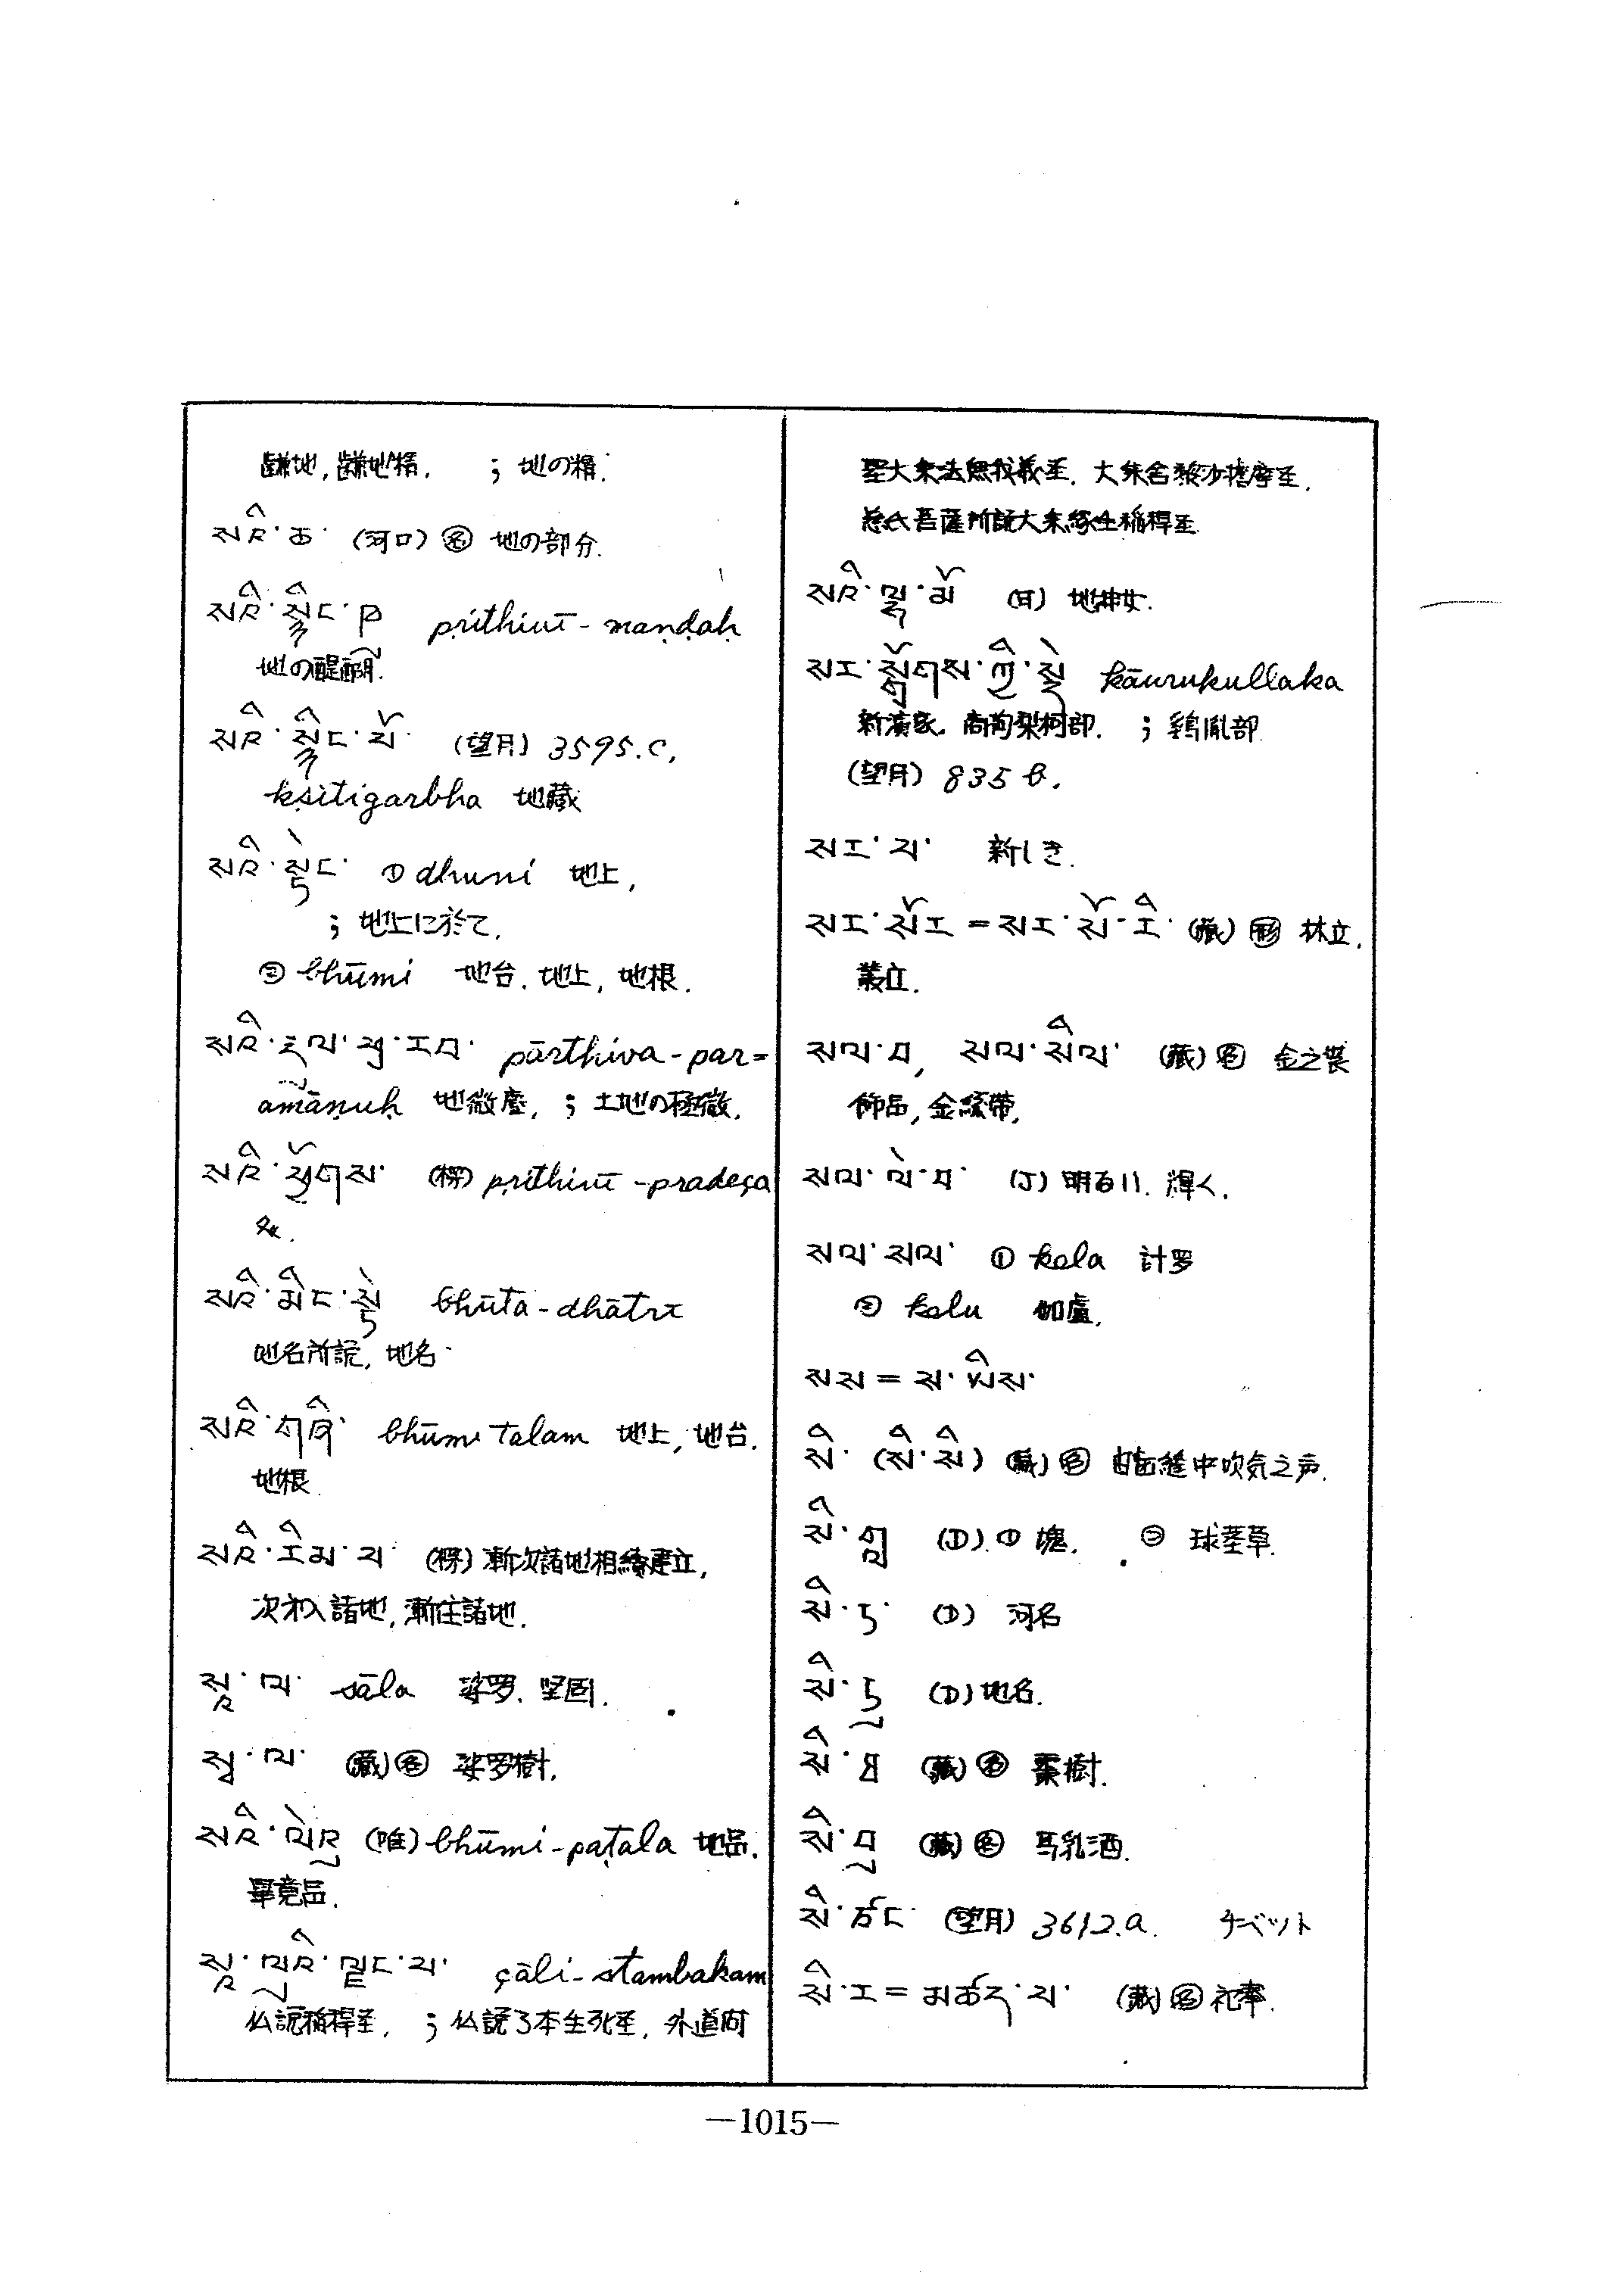 鹹地, 鹹地精. ; 地の精.
སའི་ཆ་ (河口) ㊔ 地の部分.
སའི་སྙིང་ཁུ pṛithivī-maṇḍaḥ
地の醍醐.
སའི་སྙིང་པོ་ (望月) 3595.C,
kṣitigarbha 地藏
སའི་སྟེང་ ① dhuni 地上,
; 地上に於て.
② bhūmi 地台. 地上, 地根.
སའི་རྡུལ་ཕྲ་རབ་ pārthiva-par=
amāṇuḥ 地微塵, ; 土地の極微.
སའི་ཕྱོགས་ (榜) pṛithivī-pradeça
処.
སའི་མིང་སྟེ bhūta-dhātrī
地名所説, 地名.
སའི་གཞི་ bhūmi talam 地上, 地台.
地根
སའི་རིམ་པ་ (榜) 漸次諸地相續建立,
次和入諸地, 漸住諸地.
སཱ་ལ་ sāla 娑罗. 坚固.
སཱ་ལ་ (藏) 名 娑罗樹.
སའི་ལེའུ (唯) bhūmi-paṭala 地品.
畢竟品.
སཱ་ལུའི་ལྗང་པ་ çāli-stambakam
仏説稲稈巠, ; 仏説了本生死巠, 外道問
聖大乗法無我義巠. 大乗舎黎沙擔摩巠.
慈氏菩薩所説大乗縁生稲稈巠
སའི་ལྷ་མོ (日) 地神女.
སར་སྒྲོགས་ཀྱི་སྡེ kāurukullaka
部. ; 鶏胤部
(望月) 835 b.
སར་པ་ 新しき.
སར་སོར = སར་སོ་རི་ (藏) 形 林立.
叢立.
སལ་བ, སལ་སིལ་ (藏) 名 金之装
飾品, 金絲帶.
སལ་ལེ་བ་ (J) 明るい. 輝く.
སལ་སལ་ ① kela 計罗
② kelu 伽盧.
སས = ས་ཡིས་
སི་ (སི་སི) (藏) 名 由歯縫中吹気之声.
སི་གུ (D) ① 塊. ② 球茎草.
སི་ཏ་ (D) 河名
སི་ཏུ (D) 地名.
(藏) 名 棗樹.
སི་བུ (藏) 名 馬乳酒.
སི་ཙང་ (望月) 3612.a. チベット
སི་ར = མཚོད་པ་ (藏) 名 祀奉.
—1015—